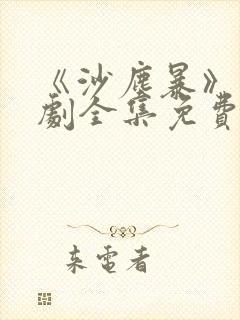 《沙塵暴》
劇全集免費
来電者